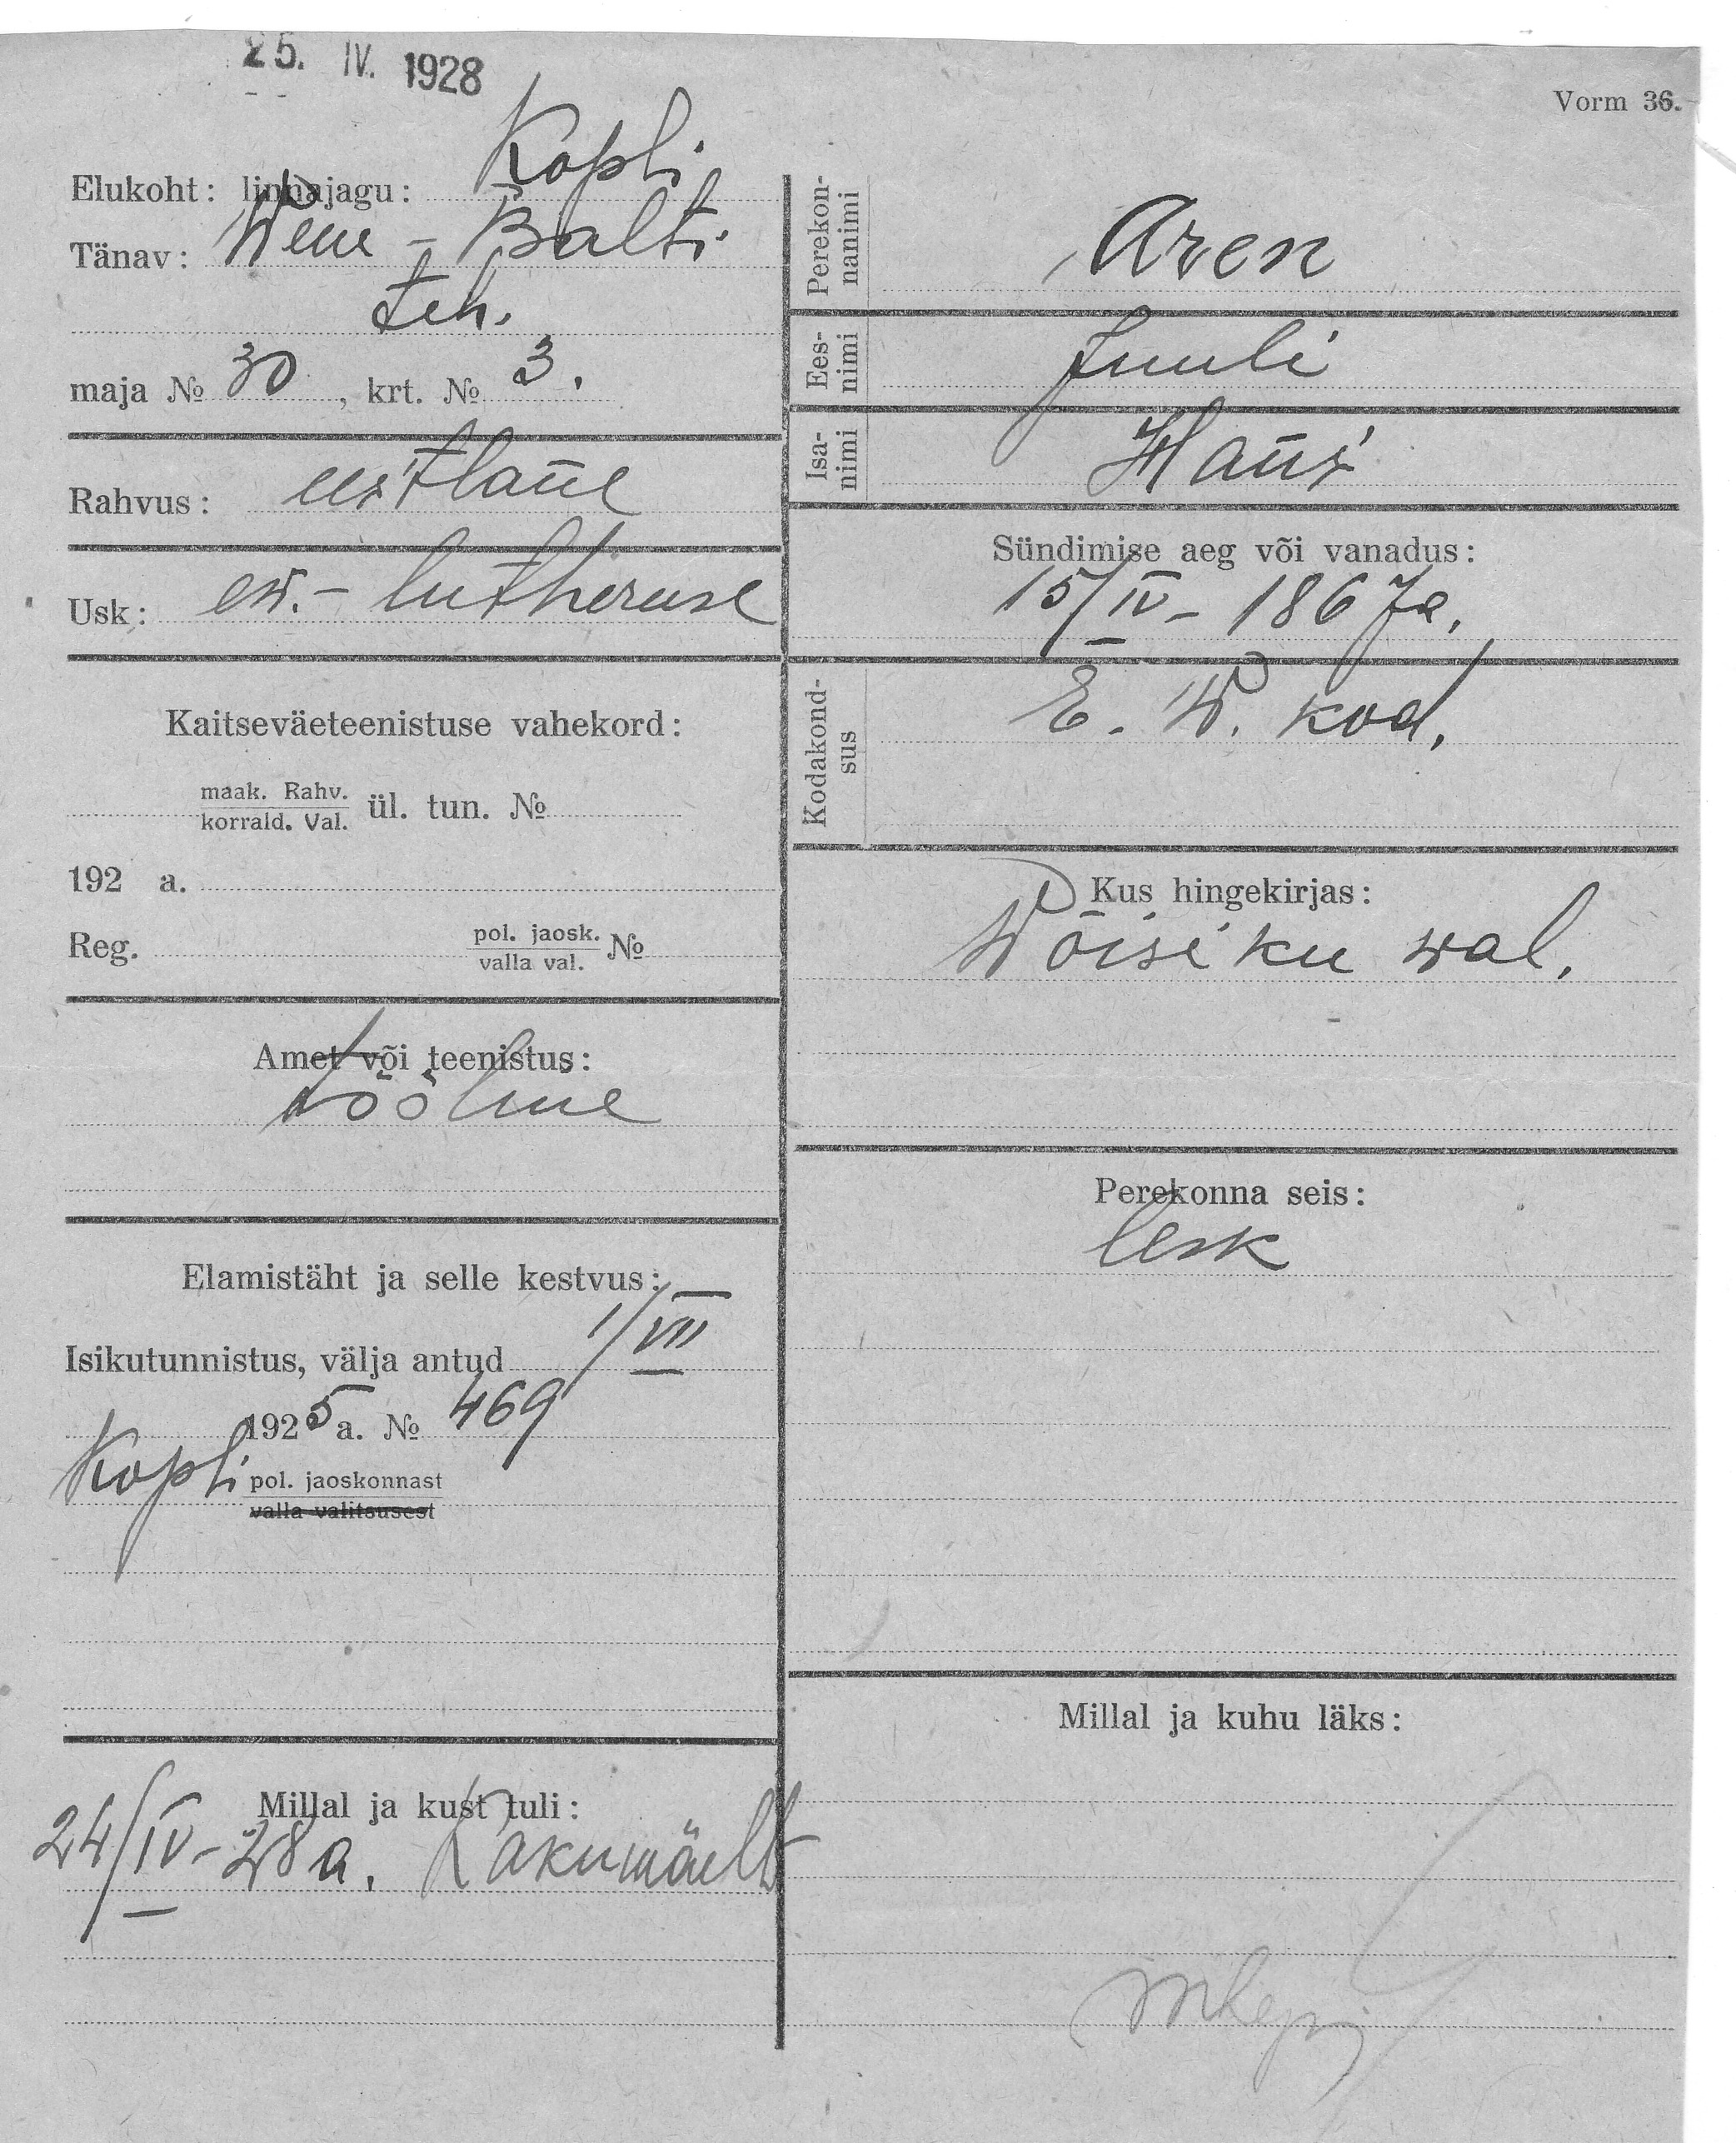 25. IV. 1928
Vorm 36.
Elukoht: linnajagu: Kopli
Tänav: Wene - Balti
teh.
maja № 30, krt. № 3.
Rahvus: eestlane
Usk: ew. - lutheruse
Kaitseväeteenistuse vahekord:
maak. Rahv.
korrald. Val. ül. tun. №
192 a.
Reg. pol. jaosk. №
valla val.
Amet või teenistus:
tööline
Elamistäht ja selle kestvus:
Isikutunnistus, välja antud 1/VII
1925 a. № 469
Kopli pol. jaoskonnast
valla valitsusest
Millal ja kust tuli:
24/IV - 28 a. Kakumäelt
Perekon-
nanimi
Aren
Ees-
nimi
Juuli
Isa-
nimi
Hans
Sündimise aeg või vanadus:
15/IV - 1867 a.
Kodakond-
sus
E. W. kod.
Kus hingekirjas:
Wõisiku wal.
Perekonna seis:
lesk
Millal ja kuhu läks: